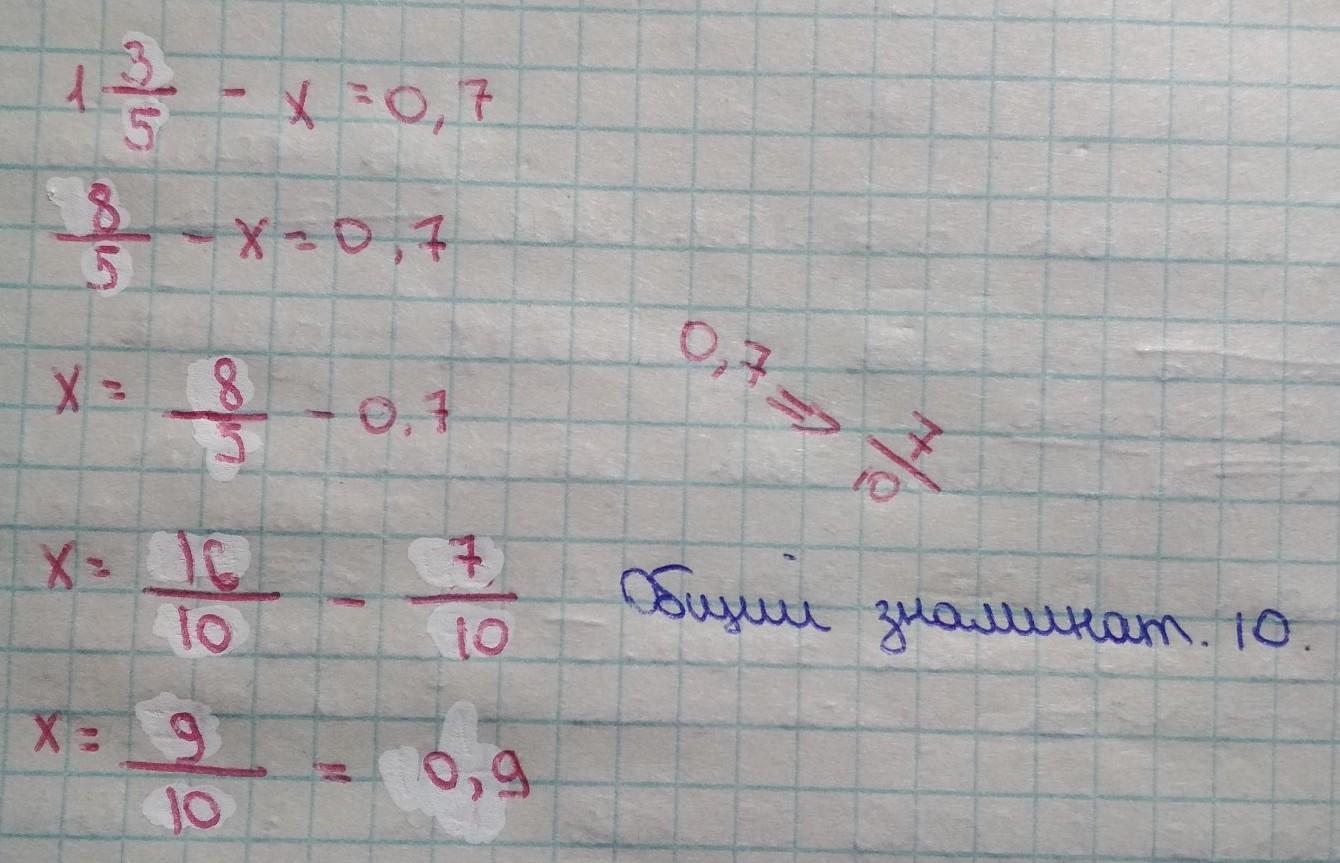 1 3/5 - x = 0,7
8/5 - x = 0,7
x = 8/5 - 0,7
0,7 ⇒ 7/10
x = 16/10 - 7/10 Общий знаминат. 10.
x = 9/10 = 0,9